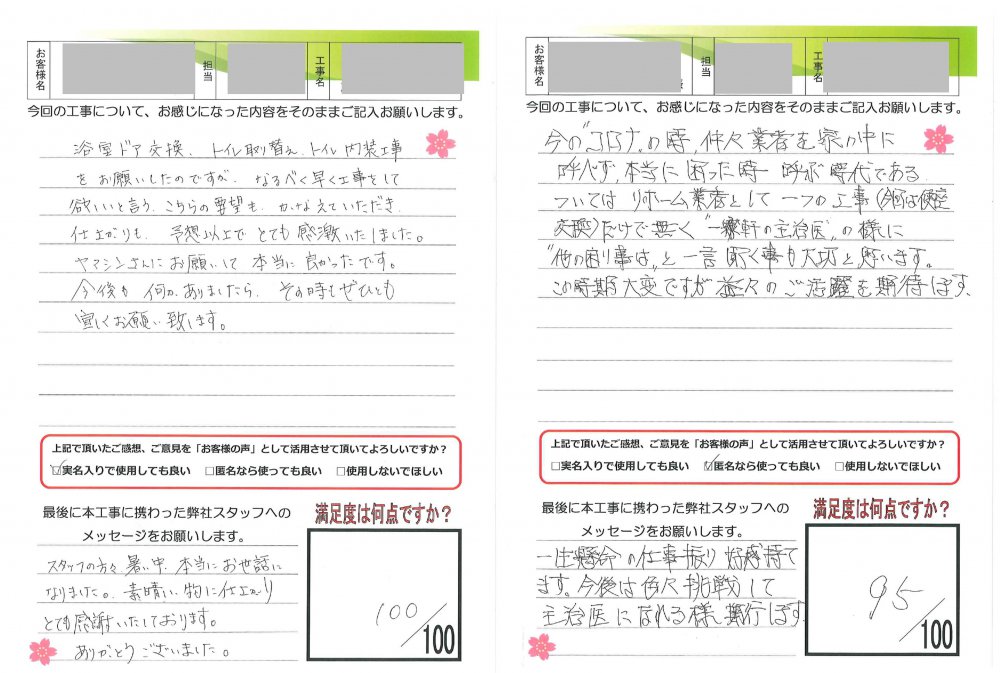 お客様名
担当
工事名
今回の工事について、お感じになった内容をそのままご記入お願いします。
浴室ドア交換、トイレ取り替え、トイレ内装工事
をお願いしたのですが、なるべく早く工事をして
欲いいと言う、こちらの要望も、かなえていただき、
仕上がりも、予想以上でとても感激いたしました。
ヤマシンさんにお願いして本当に良かったです。
今後も何かありましたら、その時もぜひとも
宜しくお願い致します。
上記で頂いたご感想、ご意見を「お客様の声」として活用させて頂いてよろしいですか？
☑実名入りで使用しても良い □匿名なら使っても良い □使用しないでほしい
最後に本工事に携わった弊社スタッフへの
メッセージをお願いします。
スタッフの方々、暑い中、本当にお世話に
なりました。素晴しい物に仕上がり
とても感謝いたしております。
ありがとうございました。
満足度は何点ですか？
100/100
お客様名
担当
工事名
今回の工事について、お感じになった内容をそのままご記入お願いします。
今の"コロナ"の時、仲々業者を家の中に
呼べず、本当に困った時呼ぶ時代である
ついてはリホーム業者として一つの工事(今回は便座
交換)だけで無く"一軒の主治医"の様に
"他の困り事は"と一言聞く事も大切と思います。
この時期大変ですが益々のご活躍を期待します、
上記で頂いたご感想、ご意見を「お客様の声」として活用させて頂いてよろしいですか？
□実名入りで使用しても良い ☑匿名なら使っても良い □使用しないでほしい
最後に本工事に携わった弊社スタッフへの
メッセージをお願いします。
一生懸命の仕事振り好感持て
ます。今後は色々挑戦して
主治医になれる様、期待します。
満足度は何点ですか？
95/100